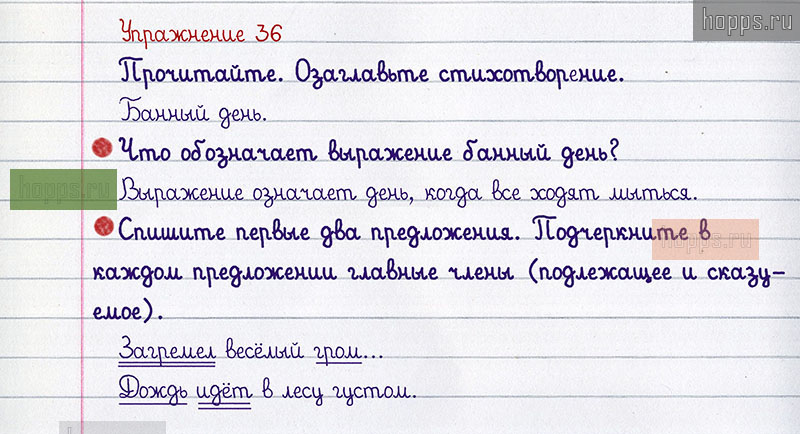 hopps.ru
Упражнение 36
Прочитайте. Озаглавьте стихотворение.
Банный день.
Что обозначает выражение банный день?
hopps.ru
Выражение означает день, когда все ходят мыться.
Спишите первые два предложения. Подчеркните в
hopps.ru
каждом предложении главные члены (подлежащее и сказу-
емое).
Загремел весёлый гром...
Дождь идёт в лесу густом.